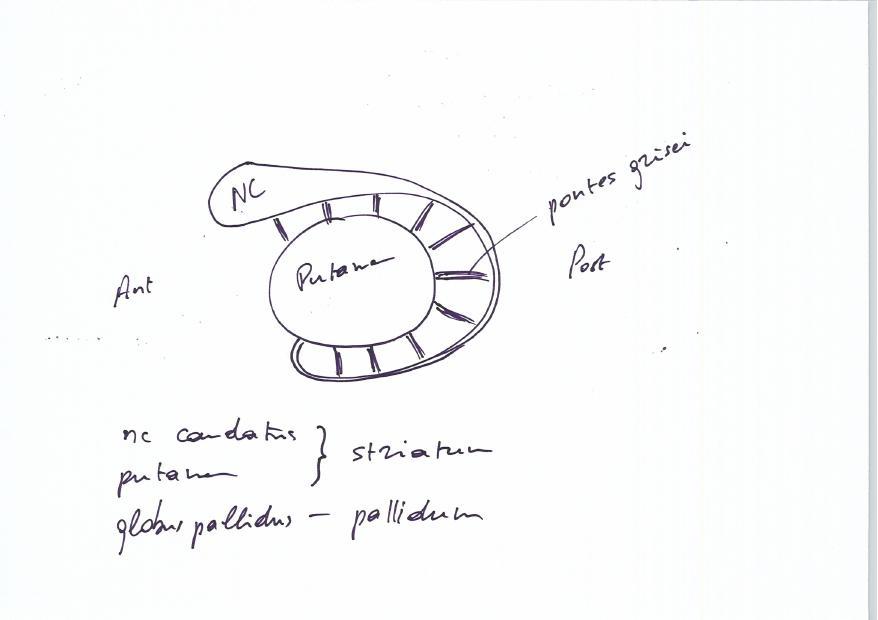 pontes grisei
NC
Putamen
Ant
Post
nc caudatus
putamen
} striatum
globus pallidus – pallidum